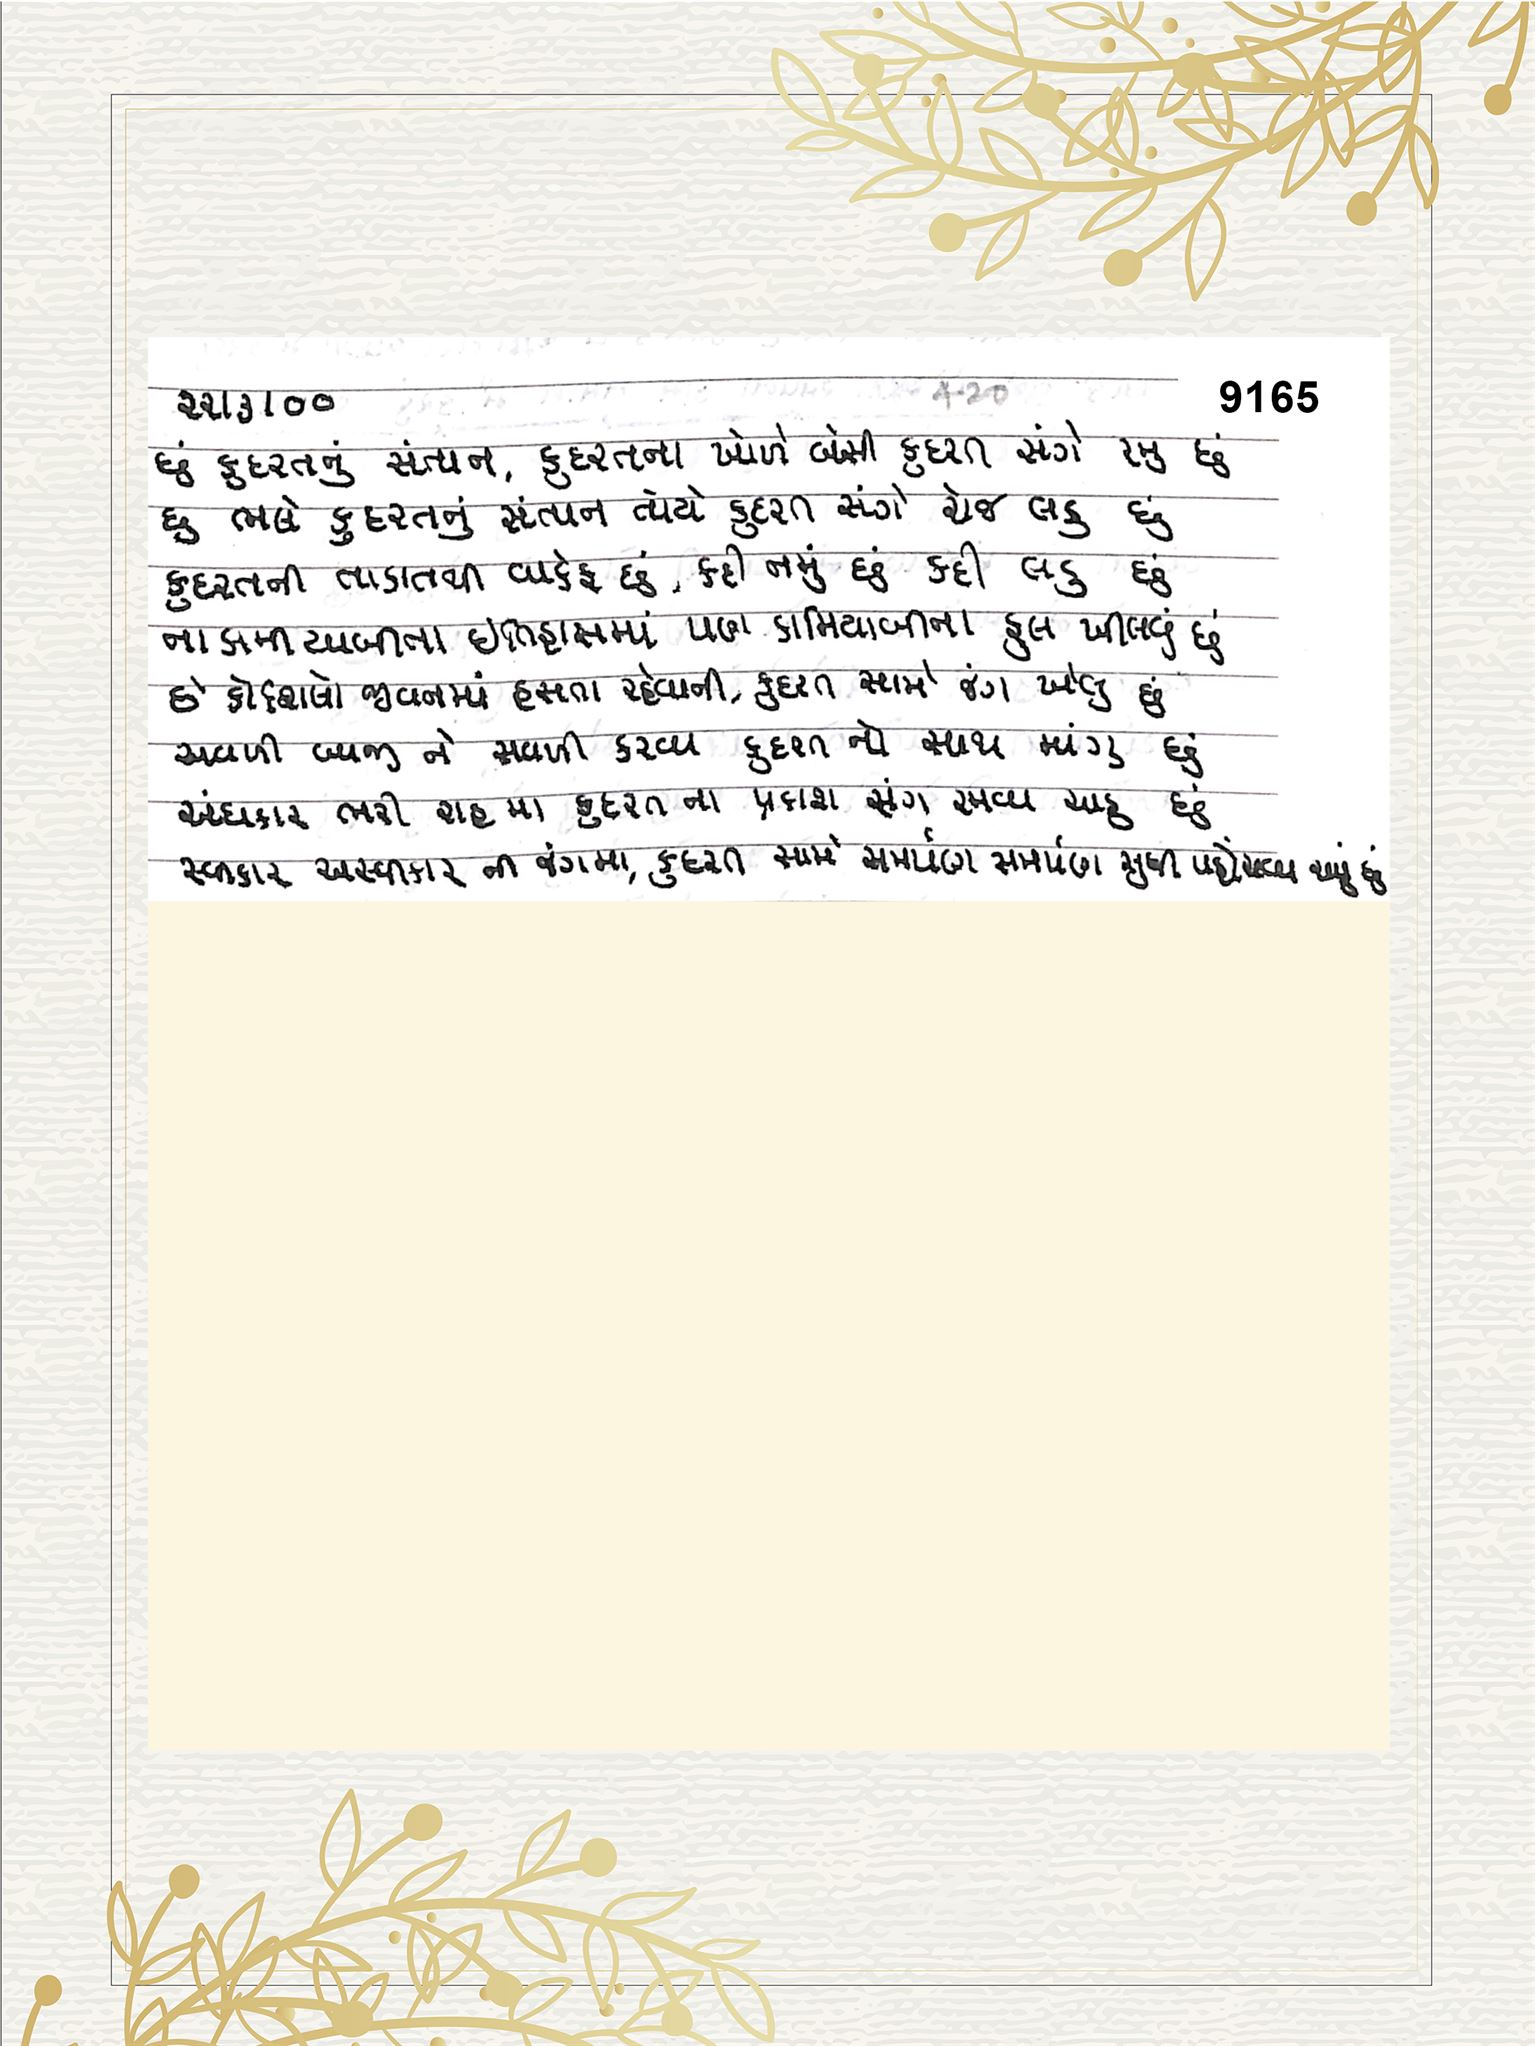 ૨૨/૩/૦૦
4-20
9165
છું કુદરતનું સંતાન, કુદરતના ખોળે બેસી કુદરત સંગે રમુ છું
છુ ભલે કુદરતનું સંતાન તોયે કુદરત સંગે રોજ લડુ છું
કુદરતની તાકાતથી વાકેફ છું, કદી નમું છું કદી લડુ છું
નાકામીયાબીના ઇતિહાસમાં પણ કામિયાબીના ફુલ ખીલવું છું
છે કોશિશો જીવનમાં હસતા રહેવાની, કુદરત સામે જંગ ખેલુ છું
અવળી બાજી ને સવળી કરવા કુદરત નો સાથ માંગુ છું
અંધકાર ભરી રાહ મા કુદરત ના પ્રકાશ સંગ રમવા ચાહુ છું
સ્વીકાર અસ્વીકાર ની જંગમા, કુદરત સામે સમર્પણ સમર્પણ સુધી પહોંચવા છું